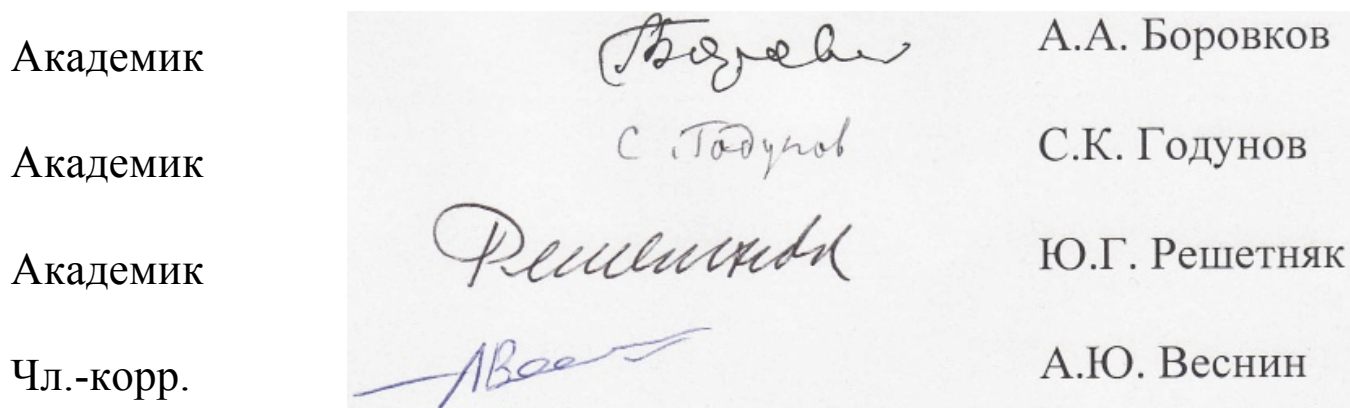 Академик Боровков А.А. Боровков
Академик С. Годунов С.К. Годунов
Академик Решетняк Ю.Г. Решетняк
Чл.-корр. А.Ю. Веснин